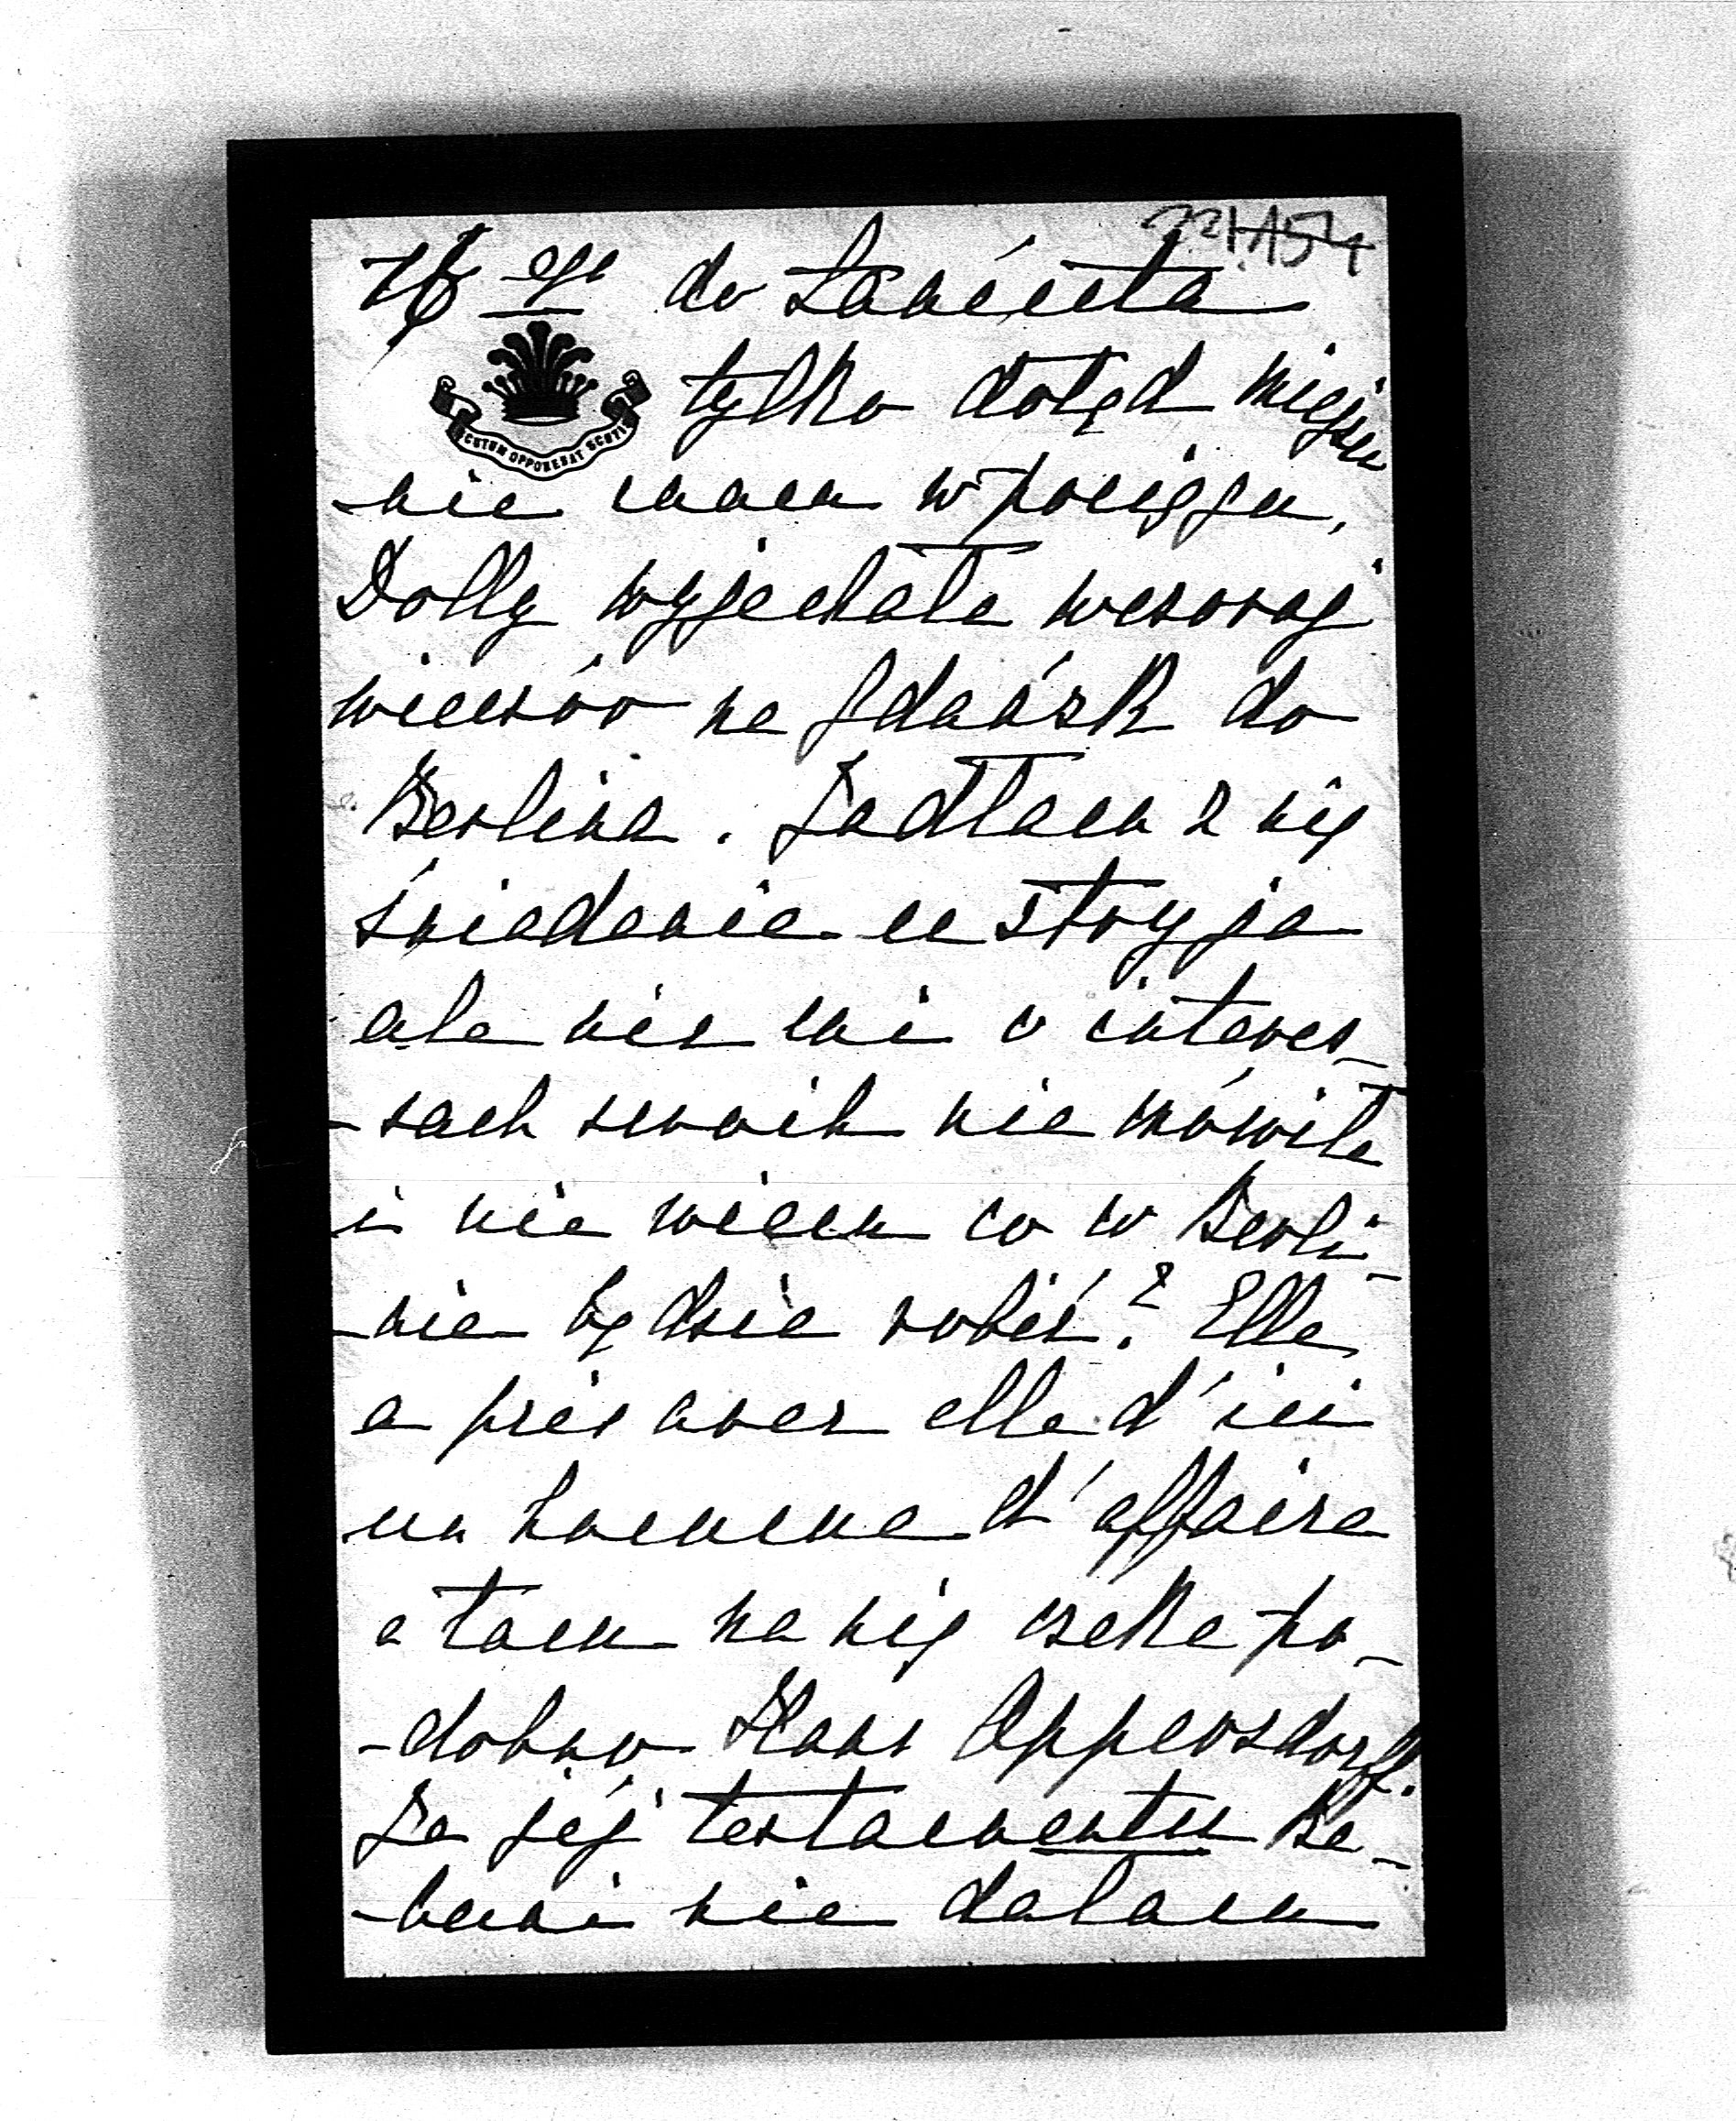 16 go do Łańcuta
SCUTUM OPPONEBAT SCUTIS
tylko dotąd miejsca
nie mam w pociągu,
Dolly wyjechała wczoraj
wieczór na Gdańsk do
Berlina. Jadłam z nią
śniadanie u stryja
ale nic mi o interes-
-sach swoich nie mówiła
i nie wiem co w Berli-
-nie będzie robić? Elle
a pris avec elle d'ici
un homme d'affaire
a tam na nią czeka po-
-dobno Hans Oppersdorff.
Ja jej testamentu Ba-
-buni nie dałam